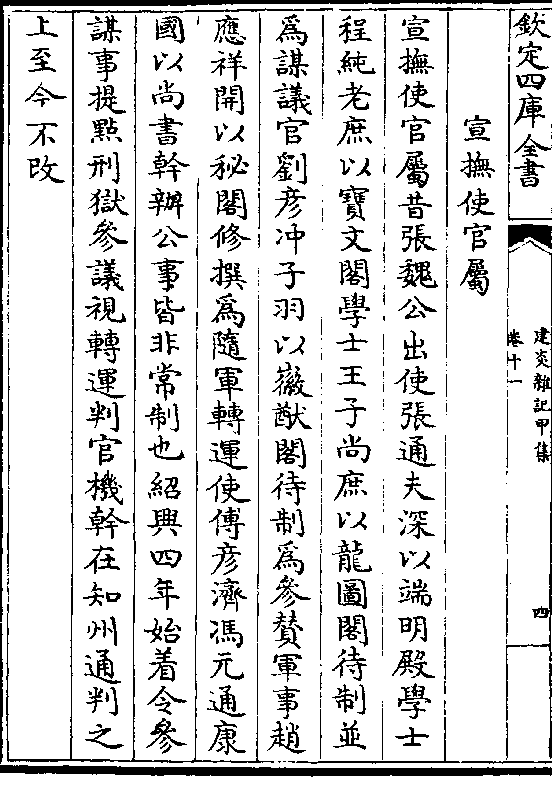 欽定四庫全書
建炎雜記甲集
卷十一
四
宣撫使官屬
宣撫使官屬昔張魏公出使張通夫深以端明殿學士
程純老庶以寶文閣學士王子尚庶以龍圖閣待制並
為謀議官劉彦冲子羽以徽猷閣待制為參贊軍事趙
應祥開以秘閣修撰為隨軍轉運使傅彦濟馮元通康
國以尚書幹辦公事皆非常制也紹興四年始着令參
謀事提點刑獄參議視轉運判官機幹在知州通判之
上至今不改